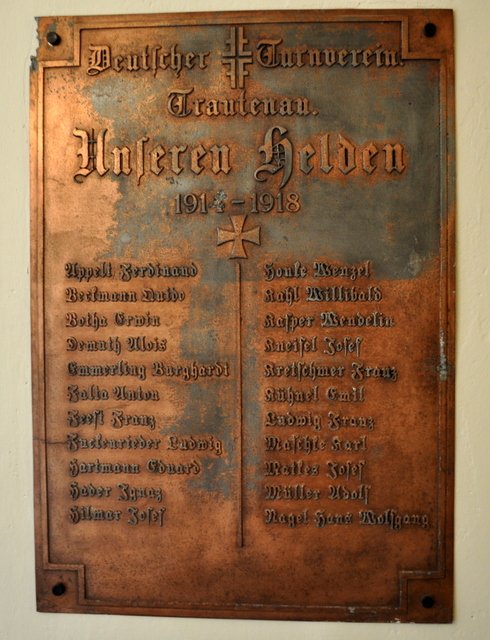 Deutscher Turnverein.
Trautenau.
Unseren Helden
1914-1918
Appelt Ferdinand
Berkmann Guido
Botha Erwin
Demuth Alois
Emmerling Burghardt
Falta Anton
Feest Franz
Fuetenrieder Ludwig
Hartmann Eduard
Hader Ignaz
Hilmar Josef
Honke Wenzel
Kahl Willibald
Kasper Wendelin
Kneifel Josef
Kretschmer Franz
Kühnel Emil
Ludwig Franz
Maschke Karl
Mattes Josef
Müller Adolf
Nagel Hans Wolfgang